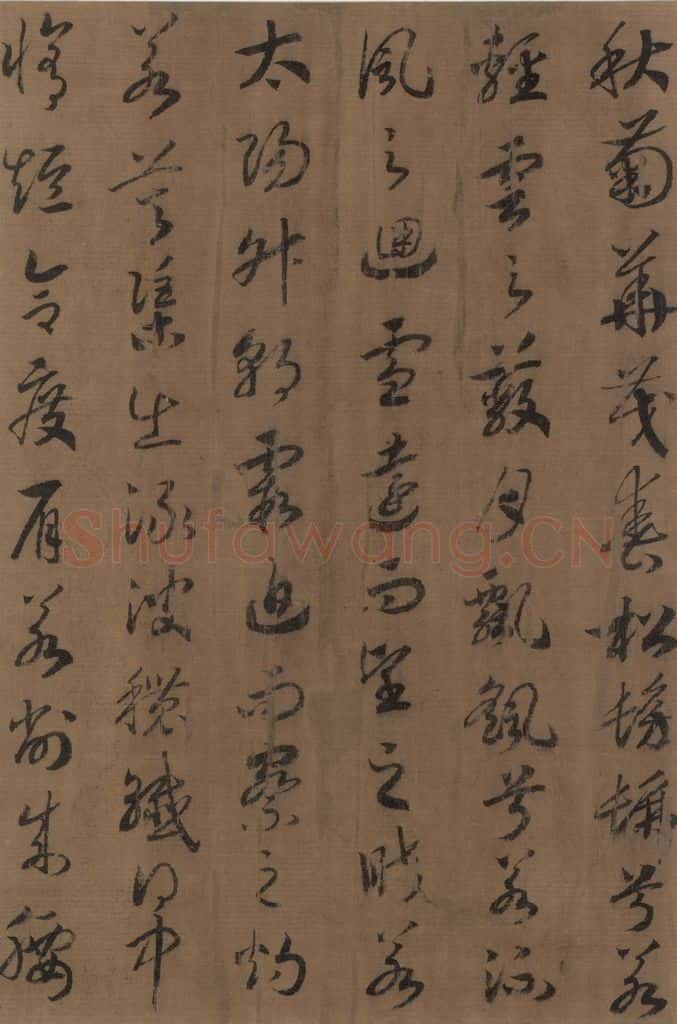 秋菊華茂春松髣髴兮若
輕雲之蔽月飄颻兮若流
風之迴雪遠而望之皎若
太陽升朝霞迫而察之灼
若芙渠出淥波穠纖得中
脩短合度肩若削成腰
Shufawang.CN